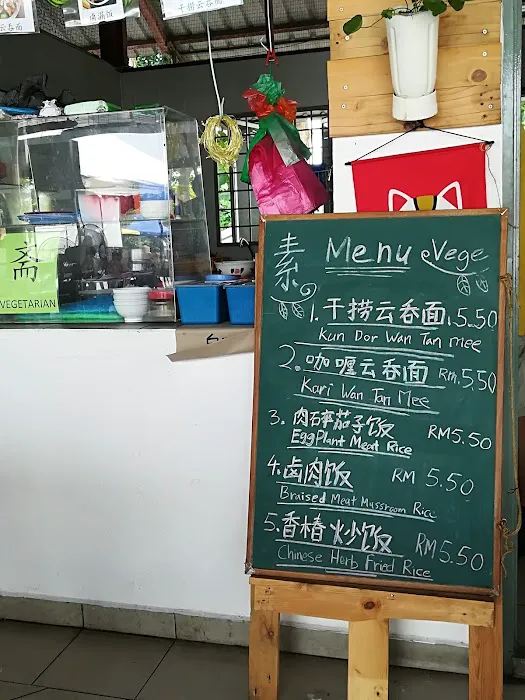 干捞云吞面
斋
VEGETARIAN
素 Menu Vege
1. 干捞云吞面 5.50
Kun Dor Wan Tan Mee
2. 咖喱云吞面 Rm.5.50
Kari Wan Tan Mee
3. 肉碎茄子饭 RM5.50
EggPlant Meat Rice
4. 卤肉饭 RM 5.50
Braised Meat Mussroom Rice
5. 香椿炒饭 RM5.50
Chinese Herb Fried Rice